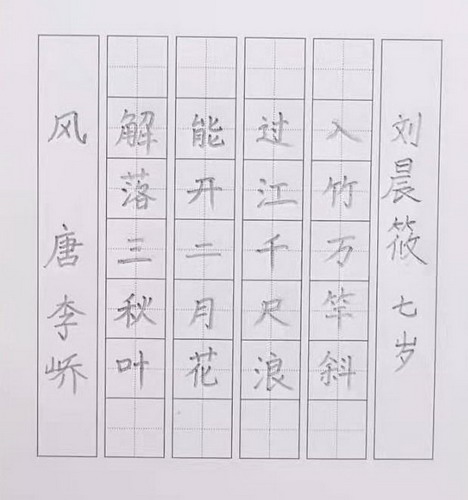 风 唐 李峤
解落三秋叶
能开二月花
过江千尺浪
入竹万竿斜
刘晨筱 七岁